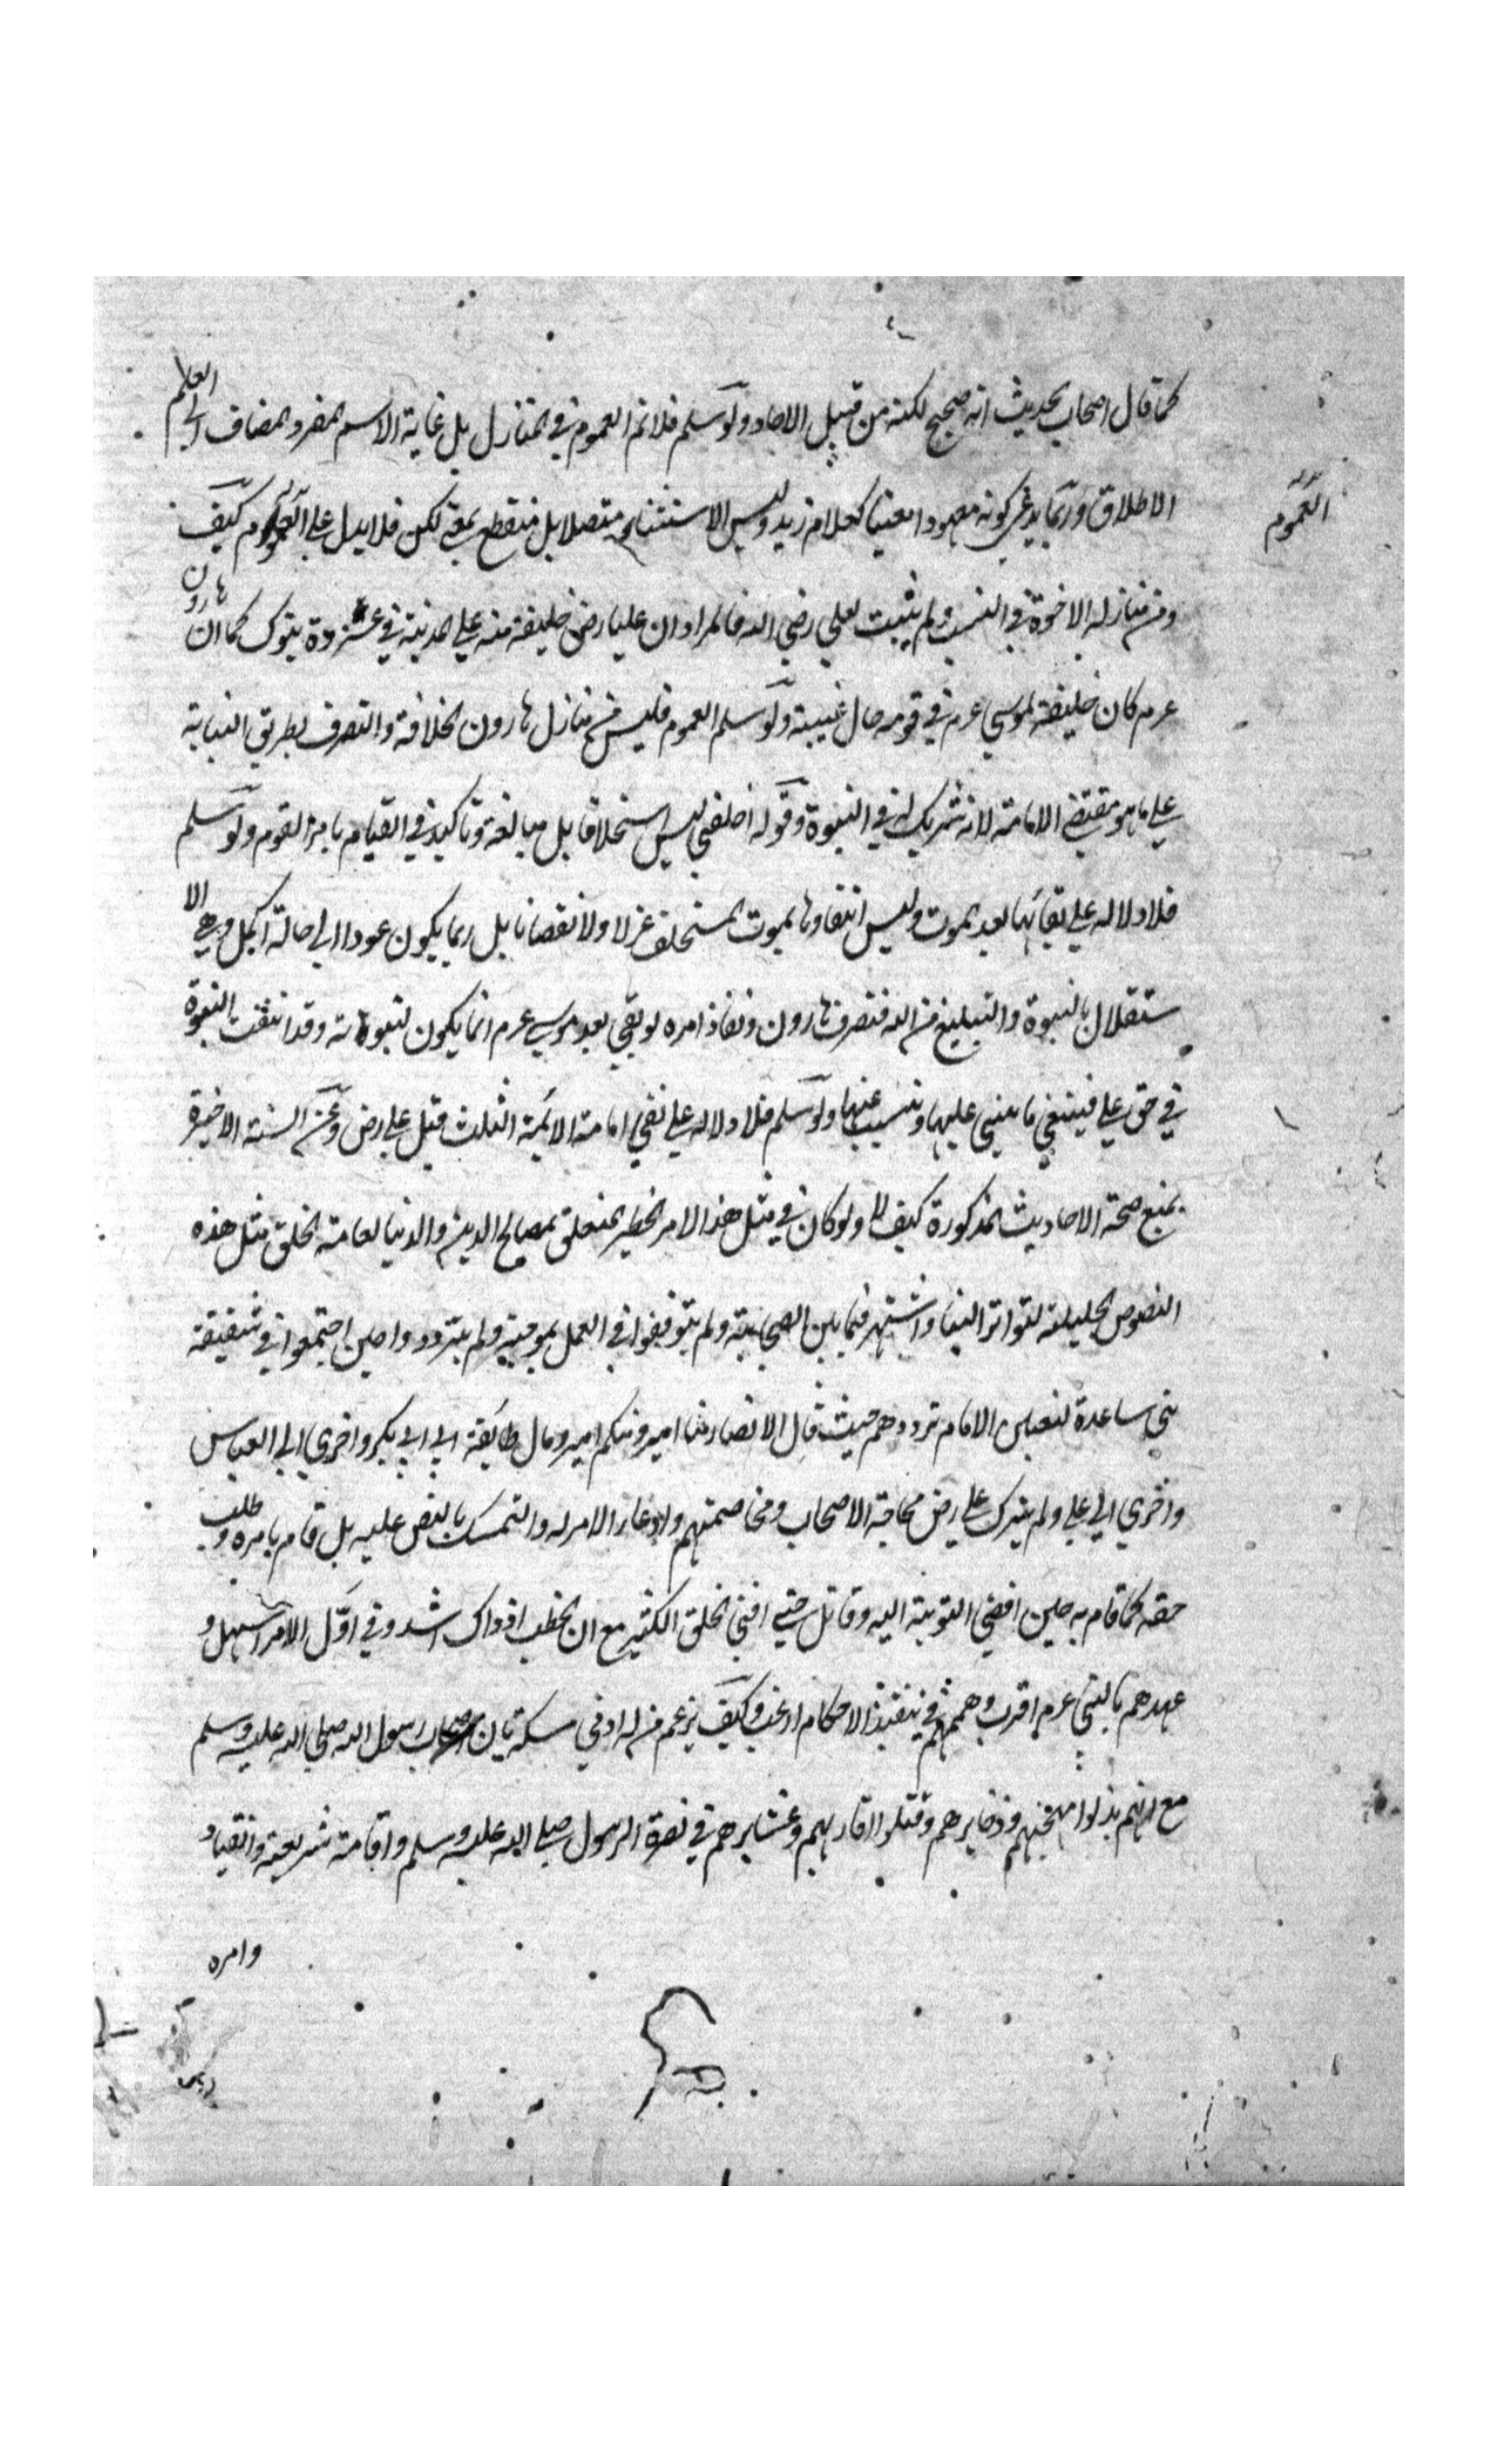 كما قال اصحاب الحديث انه صحيح لكنه من قبيل الاحاد ولو سلم فلا نم العموم في المنازل بل غاية الاسم المفرد المضاف الى العلم
الاطلاق وربما يدعى كونه معهودا معينا كغلام زيد وليس الاستثناء متصلا بل منقطع بمعنى لكن فلا يدل على العموم كيف
العموم
ومن منازله الاخوة في النسب ولم يثبت لعلي رضي الله فالمراد ان عليا رض خليفة منه على المدينة في غزوة تبوك كما ان هارون
عرم كان خليفة لموسى عرم في قومه حال غيبته ولو سلم العموم فليس من منازل هارون الخلافة والتصرف بطريق النيابة
على ما هو مقتضى الامامة لانه شريك له في النبوة وقوله اخلفني ليس استخلافا بل مبالغة وتاكيد في القيام بامر القوم ولو سلم
فلا دلاله على بقائها بعد الموت وليس انتفاوها بموت المستخلف عزلا ولا نقصانا بل ربما يكون عودا الى حالة اكمل وهي الا
ستقلال بالنبوة والتبليغ من الله فتصرف هارون ونفاذ امره لو بقي بعد موسى عرم انما يكون لنبوته وقد انتفت النبوة
في حق علي فينتفي ما يبتني عليها ويتسبب عنها ولو سلم فلا دلاله على نفي امامة الايمة الثلث قبل علي رض وعن السنة الاخيرة
بمنع صحة الاحاديث المذكورة كيف لا ولو كان في مثل هذا الامر الخطير المتعلق بمصالح الدين والدنيا لعامة الخلق مثل هذه
النصوص الجليلة لتواتر الينا واشتهر فيما بين الصحابة ولم يتوقفوا في العمل بموجبه ولم يترددوا حين اجتمعوا في سقيفة
بني ساعدة لتعيين الامام ترددهم حيث قال الانصار منا امير ومنكم امير ومال طايفة الى ابي بكر واخرى الى العباس
واخرى الى علي ولم يترك علي رض محاجة الاصحاب ومخاصمتهم وادعاء الامر له والتمسك بالنص عليه بل قام بامره وطلب
حقه كما قام به حين افضى النوبة اليه وقاتل حتى افنى الخلق الكثير مع ان الخطب اذ ذاك اشد وفي اول الامر اسهل و
عهدهم بالنبي عرم اقرب وهمهم في تنفيذ الاحكام ارغب وكيف يزعم من له ادنى مسكة بان اصحاب رسول الله صلى الله عليه وسلم
مع انهم بذلوا مهجهم وذخايرهم وقتلوا اقاربهم وعشايرهم في نصرة الرسول صلى الله عليه وسلم واقامة شريعته وانقياد
وامره